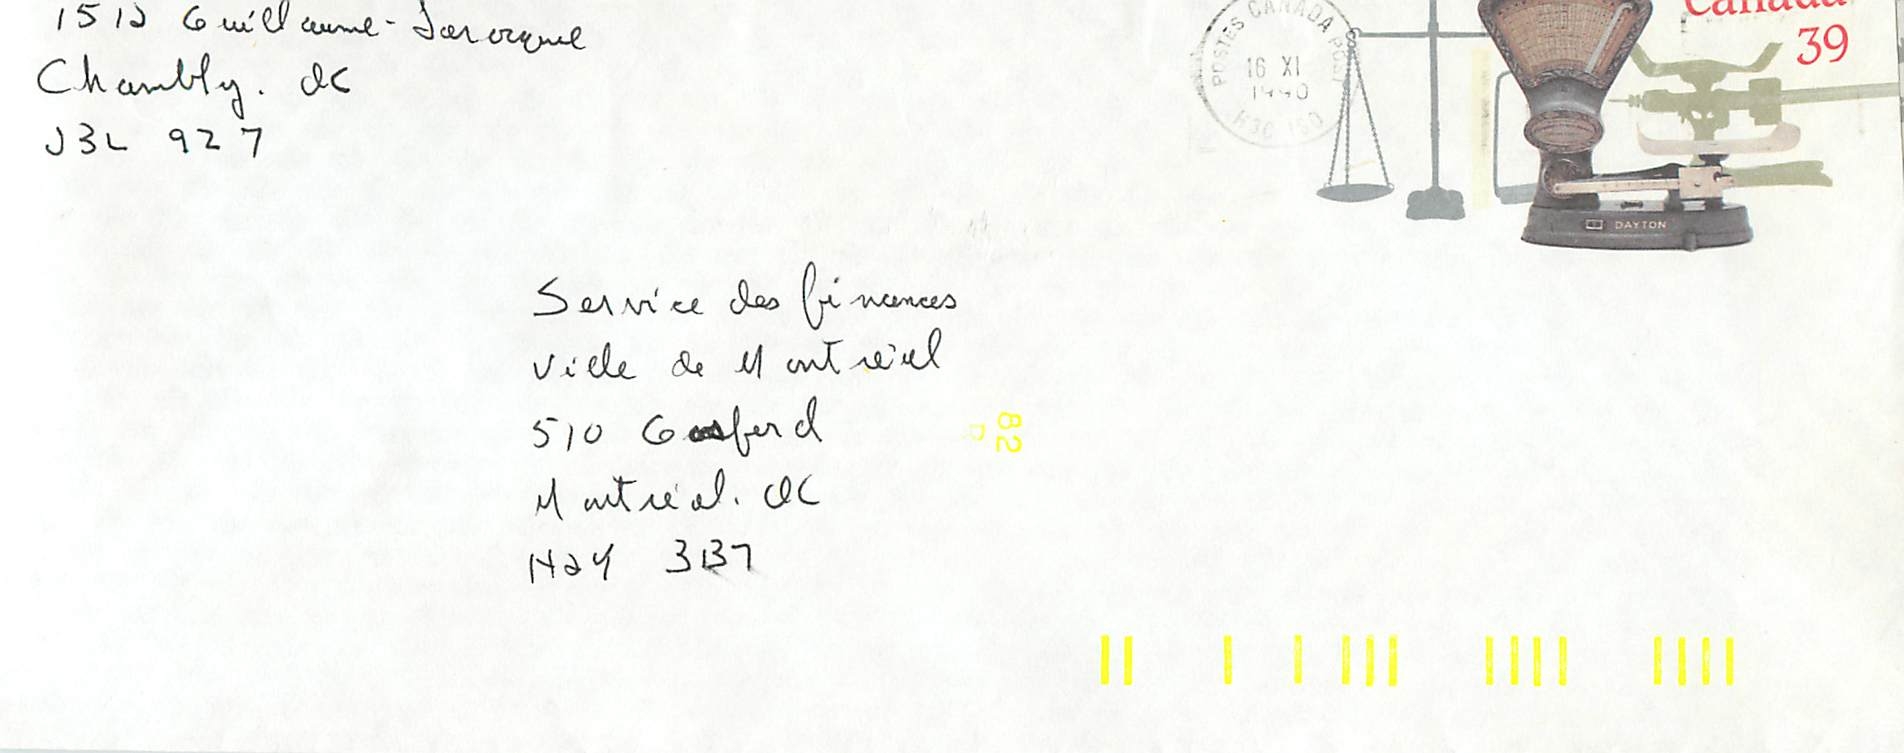 1512 Guillaume-Larocque
Chambly. QC
J3L 9Z7
POSTES CANADA POST
16 XI
1990
H3C 1S0
Canada
39
DAYTON
Service des finances
Ville de Montréal
510 Gosford
Montréal. QC
H2Y 3B7
82